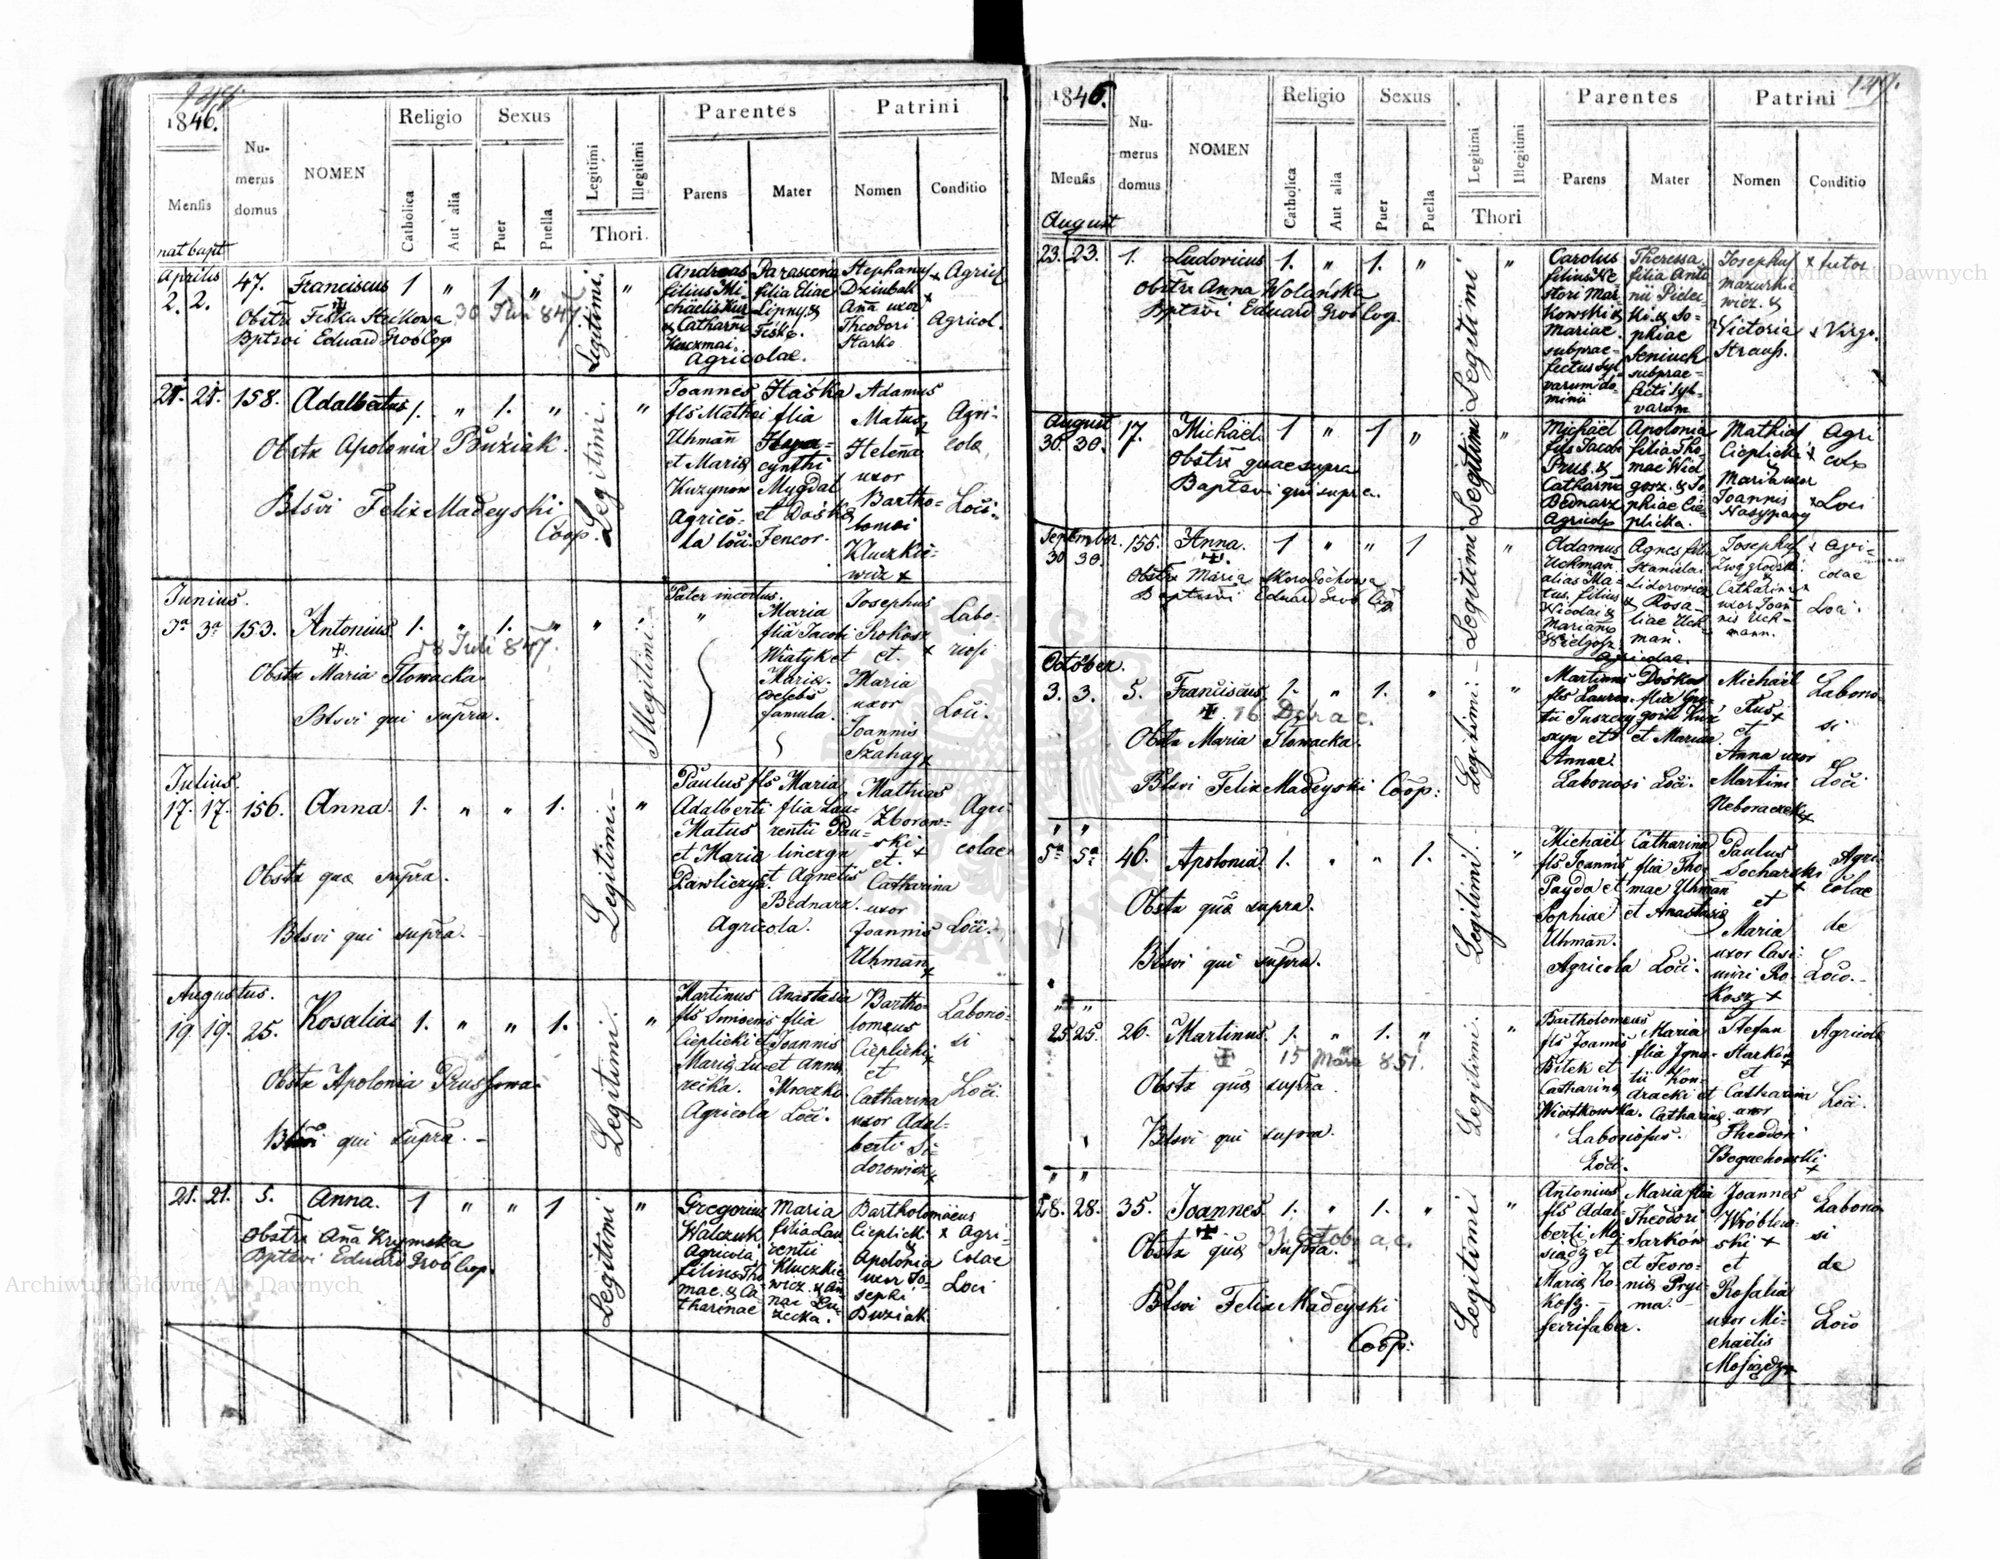 1846.
Mensis
nat bapt
Numerus domus
NOMEN
Religio
Catholica
Aut alia
Sexus
Puer
Puella
Legitimi
Illegitimi
Thori.
Parentes
Parens
Mater
Patrini
Nomen
Conditio
Aprilis
2. 2.
47.
Franciscus
1
"
1.
"
Legitimi.
"
30 Juni 847
Bptsvi Eduard Grob Cop
Andreas
filius Mi-
chaelis Kur
& Catharina
Kuczmai.
Agricolae.
Parascevia
filia Eliae
Lipny &
Feśko.
Stephanus
Dziubak
Aña uxor
Theodori
Starko
Agricol.
21. 21.
158.
Adalbertus
1.
"
1.
"
Legitimi.
"
Obstx Apolonia Buziak.
Btsvi Felix Madeyski
Coop.
Joannes
fls Mathei
Uhmañ
et Maria
Kuzymow
Agrico-
la loci.
Haśka
flia
cynthi
Mygdal
et Dośka
Fencor.
Adamus
Matus
Helena
uxor
Bartho-
lomei
Kluczkie-
wicz +
Agri-
cola
Loci.
Junius.
3a 3a
153.
Antonius
1.
"
1.
"
"
Illegitimi.
18 Juli 847.
Obstx Maria Słowacka
Btsvi qui supra.
Pater incertus.
"
Maria
flia Jacobi
Wiatyk et
Maria.
coelebs
famula.
Josephus
Rokosz
et.
Maria
uxor
Joannis
Szahay
Labo-
riosi
Loci.
Julius.
17. 17.
156.
Anna.
1.
"
"
1.
Legitimi.
"
Obstx quæ supra.
Btsvi qui supra.
Paulus fls
Adalberti
Matus
et Maria
Pawliczyn
Agricola.
Maria
flia Lau-
rentii Pau-
linczyn
et Agnetis
Bednarz.
Mathias
Zborow-
ski +
et.
Catharina
uxor
Joannis
Uhmañ
Agri-
colae
Loci.
Augustus.
19. 19.
25.
Rosalia
1.
"
"
1.
Legitimi.
"
Obstx Apolonia Prussowa
Btsvi qui supra.
Martinus
fls Simonis
Cieplicki et
Maria Lu-
recka.
Agricola Loci.
Anastasia
flia
Joannis
et Anna
Mroczko
Bartho-
lomeus
Cieplicki
et
Catharina
uxor Adal-
berti Si-
dorowicz
Laborio-
si
Loci.
21. 21.
5.
Anna.
1
"
"
1
Legitimi
"
Obstri Aña Krymska
Bptsvi Eduard Grob Cop.
Gregorius
Walczuk
Agricola
filius Tho
mae. & Ca-
tharinae
Maria
filia Lau
rentii
Kluczkie
wicz. & An-
nae Lu-
recka.
Bartholomäeus
Cieplicki
&
Apolonia
uxor Jo-
sephi
Buziak
Agri-
colae
Loci
147.
1846.
Mensis
Numerus domus
NOMEN
Religio
Catholica
Aut alia
Sexus
Puer
Puella
Legitimi
Illegitimi
Thori
Parentes
Parens
Mater
Patrini
Nomen
Conditio
August
23. 23.
1.
Ludovicus
1.
"
1.
"
Legitimi
"
Obstri Anna Wolańska
Bptsvi Eduard Grob Cop.
Carolus
filius Ne-
stori Mar-
kowski &
Mariae.
subprae-
fectus syl-
varum do-
minii
Theressa
filia Anto
nii Pielec-
ki. & So-
phiae
Seniuck
subprae-
fecti syl-
varum
Josephus
Mazurkie
wicz. &
Victoria
Strauss.
+ Virgo.
August
30. 30.
17.
Michäel
1
"
1
"
Legitimi
"
Obstri quae supra
Baptsvi qui supra.
Michäel
fils Jacobi
Prus. &
Catharina
Bednarz
Agricola
Apolonia
filia Tho
mae Wiel
gosz. & So
phiae Cie-
plicka.
Mathias
Cieplicki
&
Maria uxor
Joannis
Nasypany
Agri
colæ
Loci
September.
30 30.
155.
Anna.
1
"
"
1
Legitimi
"
Bptsvi Eduard Grob Cop.
Adamus
Uckman
alias Ma-
tus. filius
Nicolai &
Marianna
Wielgosz
Agricolae.
Agnes filia
Stanislai
Sidorowicz
& Rosa-
liae Uck-
man.
Josephus
&
Catharina
uxor Joan
nis Uck-
mann.
Agri-
colae
Loci.
October.
3. 3.
5.
Franciscus
1.
"
1.
"
Legitimi.
"
16 Debr a c.
Obstx Maria Słowacka.
Btsvi Felix Madeyski Coop:
Martinus
fls Lauren-
tii Juszczy
szyn et
Annae.
Laboriosi Loci.
Dośka
flia Gre-
gorii
et Maria
Michäel
Rus
et
Anna uxor
Martini
Neboraczek
Laborio
si
Loci
" "
5a 5a
46.
Apolonia
1.
"
"
1.
Legitimi.
"
Obstx quæ supra.
Btsvi qui supra.
Michäel
fls Joannis
Payda et
Sophiae
Uhmañ.
Agricola Loci.
Catharina
flia Tho-
mae Uhmañ
et Anastasia
Paulus
Socharski
et
Maria
uxor Casi-
miri Ro-
kosz +
Agri-
colae
de
Loco.
" "
25. 25.
26.
Martinus
1.
"
1.
"
Legitimi.
"
15 März 851.
Obstx quæ supra
Btsvi qui supra.
Bartholomeus
fls Joannis
Bilek et
Catharina
Wiatkowska.
Laboriosus.
Loci.
Maria
flia Igna-
tii Kon-
dracki et
Catharina
Stefan
Starków
et
Catharina
uxor
Theodori
Boguchowski
Agricola
Loci.
" "
28. 28.
35.
Joannes
1.
"
1.
"
Legitimi
"
31 Octobr a. c.
Obstx quæ supra.
Btsvi Felix Madeyski
Coop:
Antonius
fls Adal-
berti Mo-
siadz et
Maria Ko-
kosz.
ferrifaber.
Maria flia
Theodori
Sarkow
et Feoro-
nia Pryi-
ma.
Joannes
Wróblew-
ski +
et
Rosalia
uxor Mi-
chaelis
Mosiądz
Laborio
si
de
Loco
Archiwum Główne Akt Dawnych
Archiwum Główne Akt Dawnych